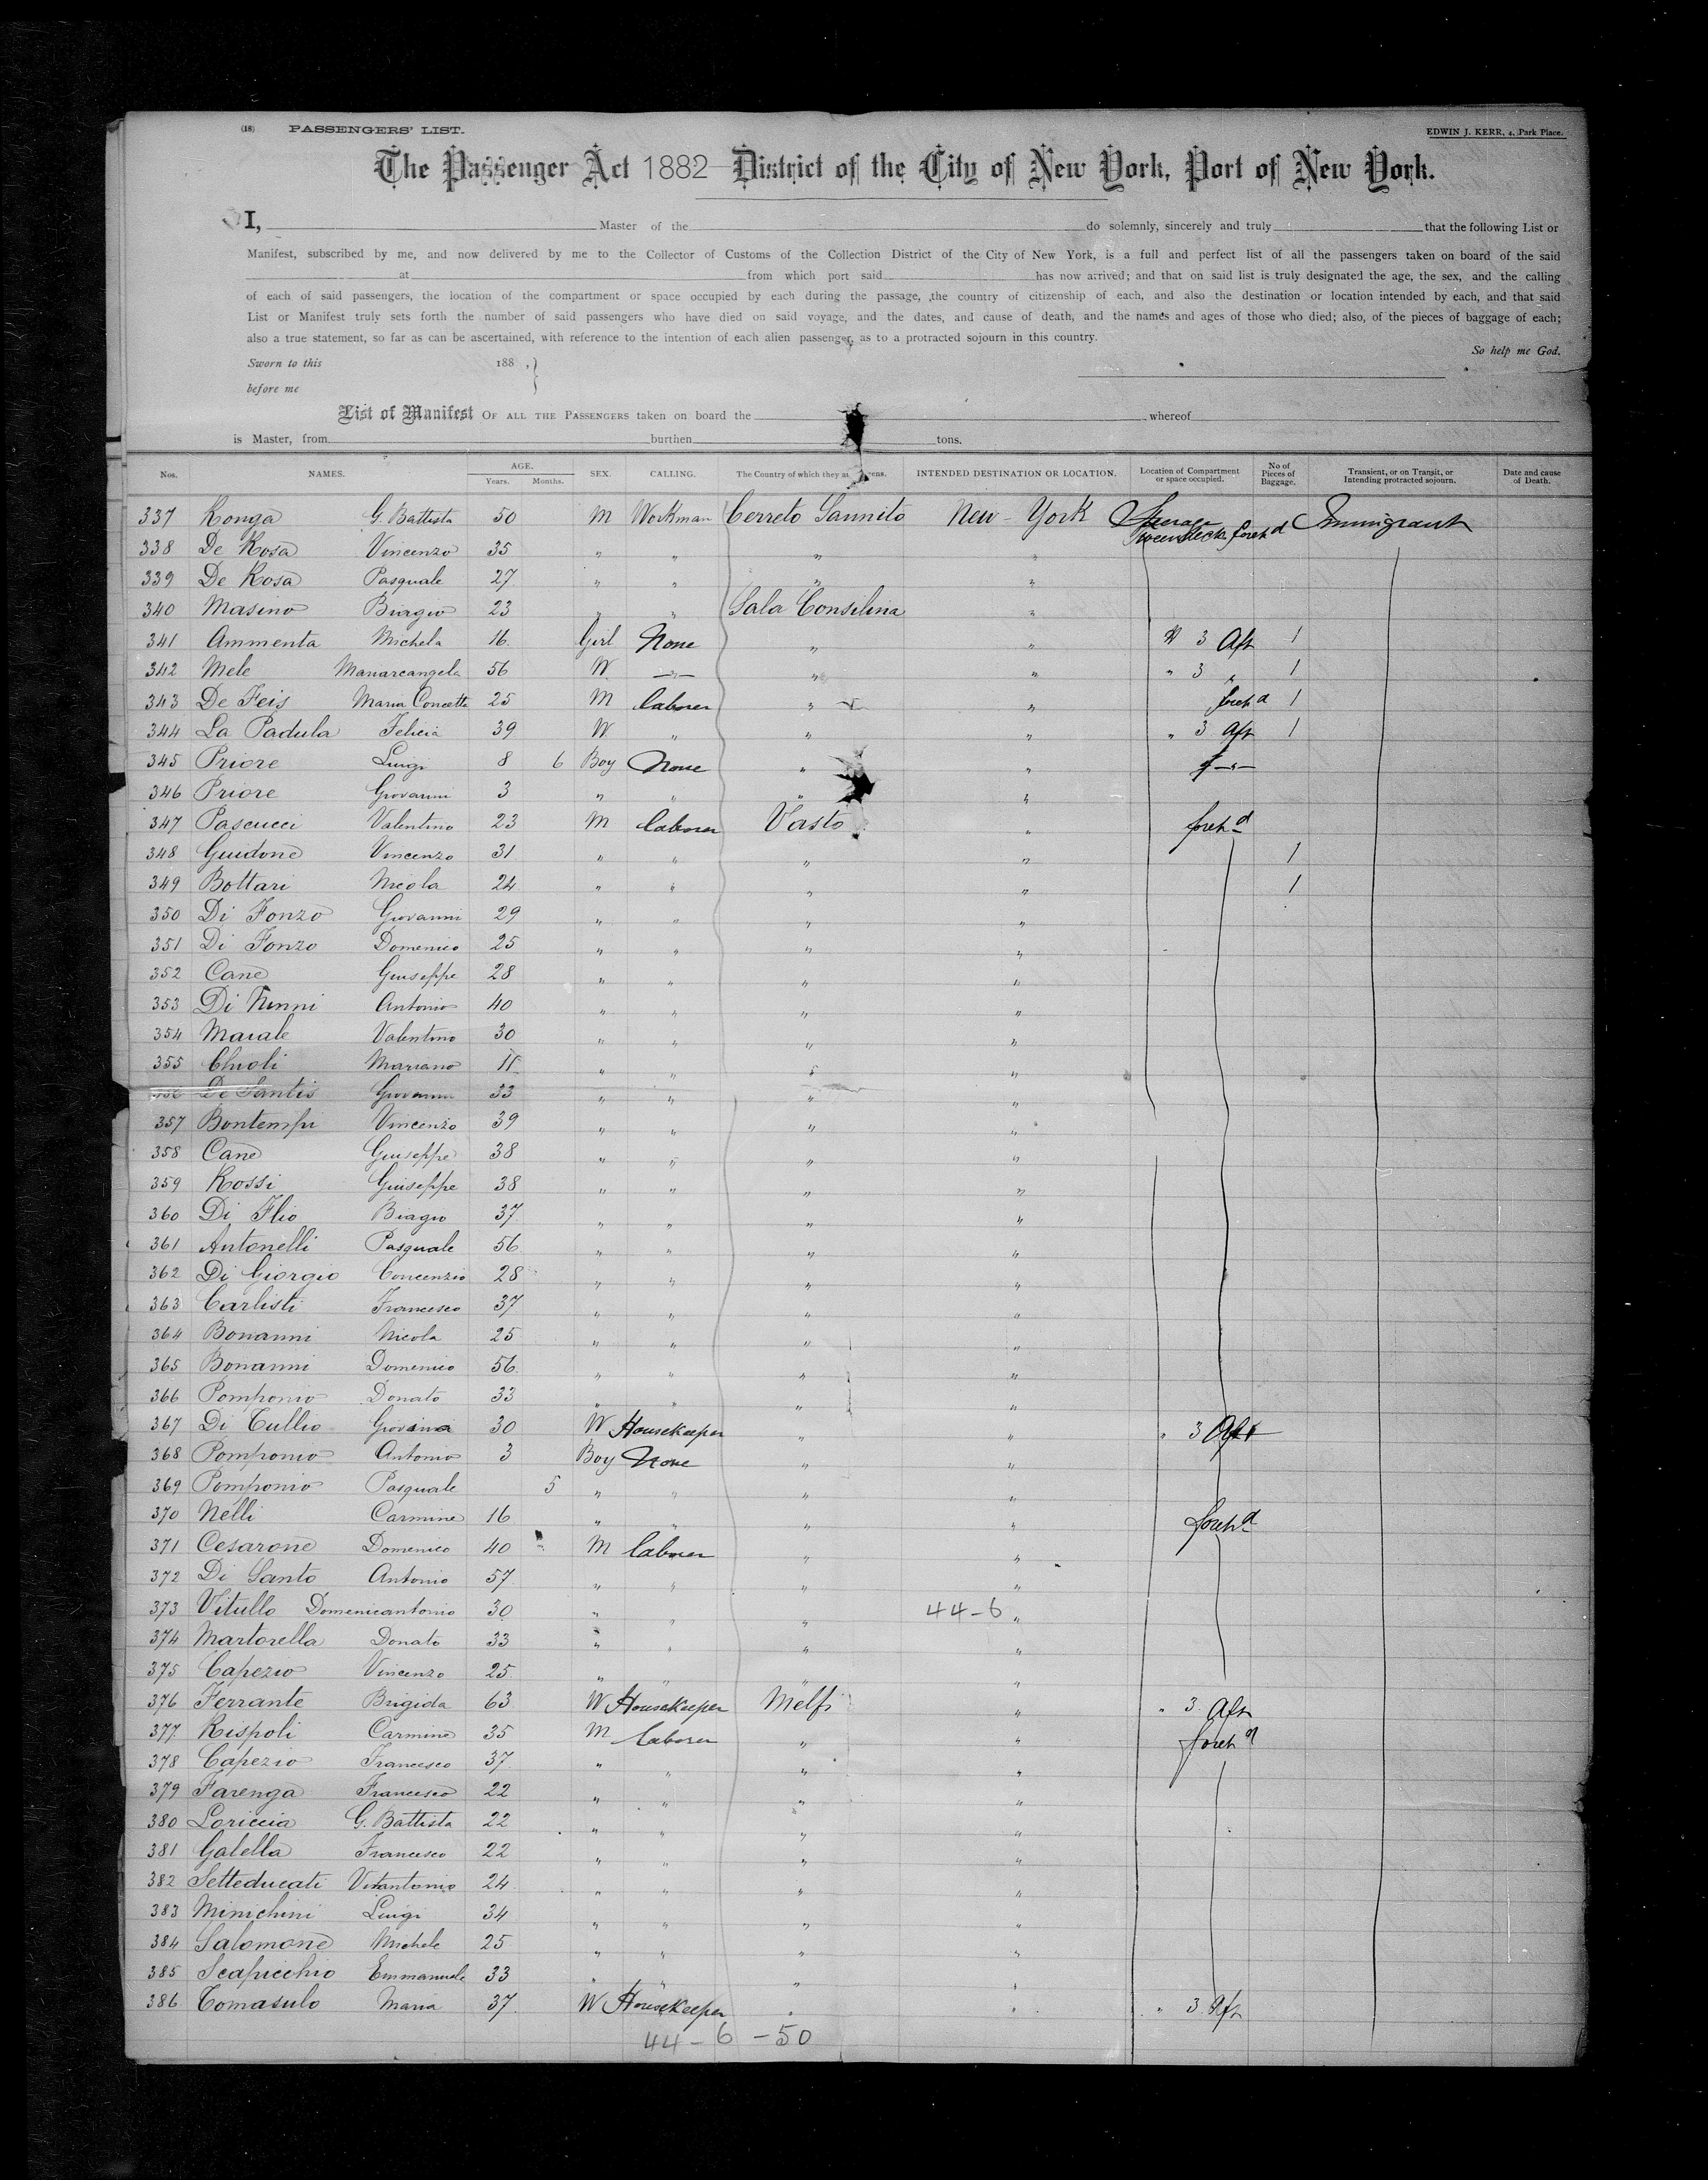 (18) PASSENGERS' LIST. EDWIN J. KERR, 4, Park Place.
The Passenger Act 1882 District of the City of New York, Port of New York.
I, Master of the do solemnly, sincerely and truly that the following List or
Manifest, subscribed by me, and now delivered by me to the Collector of Customs of the Collection District of the City of New York, is a full and perfect list of all the passengers taken on board of the said
at from which port said has now arrived; and that on said list is truly designated the age, the sex, and the calling
of each of said passengers, the location of the compartment or space occupied by each during the passage, the country of citizenship of each, and also the destination or location intended by each, and that said
List or Manifest truly sets forth the number of said passengers who have died on said voyage, and the dates, and cause of death, and the names and ages of those who died; also, of the pieces of baggage of each;
also a true statement, so far as can be ascertained, with reference to the intention of each alien passenger, as to a protracted sojourn in this country.
So help me God.
Sworn to this 188 ,}
before me
List of Manifest OF ALL THE PASSENGERS taken on board the whereof
is Master, from burthen tons.
Nos. NAMES. AGE. Years. Months. SEX. CALLING. The Country of which they are INTENDED DESTINATION OR LOCATION. Location of Compartment or space occupied. No of Pieces of Baggage. Transient, or on Transit, or Intending protracted sojourn. Date and cause of Death.
337 Ronga G. Battista 50 M Workman Cerreto Sannito New-York Steerage Immigrant
338 De Rosa Vincenzo 35 " " " " Tweendeck foreh d
339 De Rosa Pasquale 27 " " " "
340 Masino Biagio 23 " " Sala Consilina "
341 Ammenta Michela 16 Girl None " " 3 Aft 1
342 Mele Mariarcangela 56 W " " " " 3 " 1
343 De Feis Maria Concetta 25 M laborer " " foreh d 1
344 La Padula Felicia 39 W " " " " 3 Aft 1
345 Priore Luigi 8 6 Boy None " "
346 Priore Giovanni 3 " " " "
347 Pascucci Valentino 23 M laborer Vasto " foreh d
348 Guidone Vincenzo 31 " " " " 1
349 Bottari Nicola 24 " " " " 1
350 Di Fonzo Giovanni 29 " " " "
351 Di Fonzo Domenico 25 " " " "
352 Cane Giuseppe 28 " " " "
353 Di Ninni Antonio 40 " " " "
354 Maiale Valentino 30 " " " "
355 Chioli Mariano 11 " " " "
356 De Santis Giovanni 33 " " " "
357 Bontempi Vincenzo 39 " " " "
358 Cane Giuseppe 38 " " " "
359 Rossi Giuseppe 38 " " " "
360 Di Ilio Biagio 37 " " " "
361 Antonelli Pasquale 56 " " " "
362 Di Giorgio Concenzio 28 " " " "
363 Carlisti Francesco 37 " " " "
364 Bonanni Nicola 25 " " " "
365 Bonanni Domenico 56 " " " "
366 Pomponio Donato 33 " " " "
367 Di Tullio Giovina 30 W Housekeeper " " " 3 Aft
368 Pomponio Antonio 3 Boy None " "
369 Pomponio Pasquale 5 " " " "
370 Nelli Carmine 16 " " " " foreh d
371 Cesarone Domenico 40 M laborer " "
372 Di Santo Antonio 57 " " " "
373 Vitullo Domenicantonio 30 " " " 44-6 "
374 Martorella Donato 33 " " " "
375 Capezio Vincenzo 25 " " " "
376 Ferrante Brigida 63 W Housekeeper Melfi " " 3 Aft
377 Rispoli Carmine 35 M laborer " " foreh d
378 Capezio Francesco 37 " " " "
379 Farenga Francesco 22 " " " "
380 Loriccia G. Battista 22 " " " "
381 Galella Francesco 22 " " " "
382 Setteducati Vitantonio 24 " " " "
383 Minichini Luigi 34 " " " "
384 Salomone Michele 25 " " " "
385 Scapicchio Emmanuele 33 " " " "
386 Tomasulo Maria 37 W Housekeeper " " " 3 Aft
44-6-50